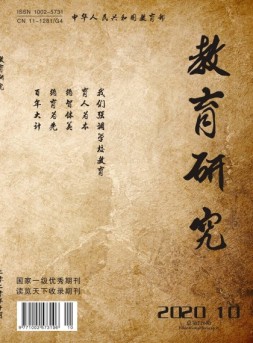 ISSN 1002-5731
CN 11-1281/G4
中华人民共和国教育部
教育研究
我们强调学校教育
育人为本
德智体美
德育为先
百年大计
教育研究
国家一级优秀期刊
读览天下收录期刊
2020 10